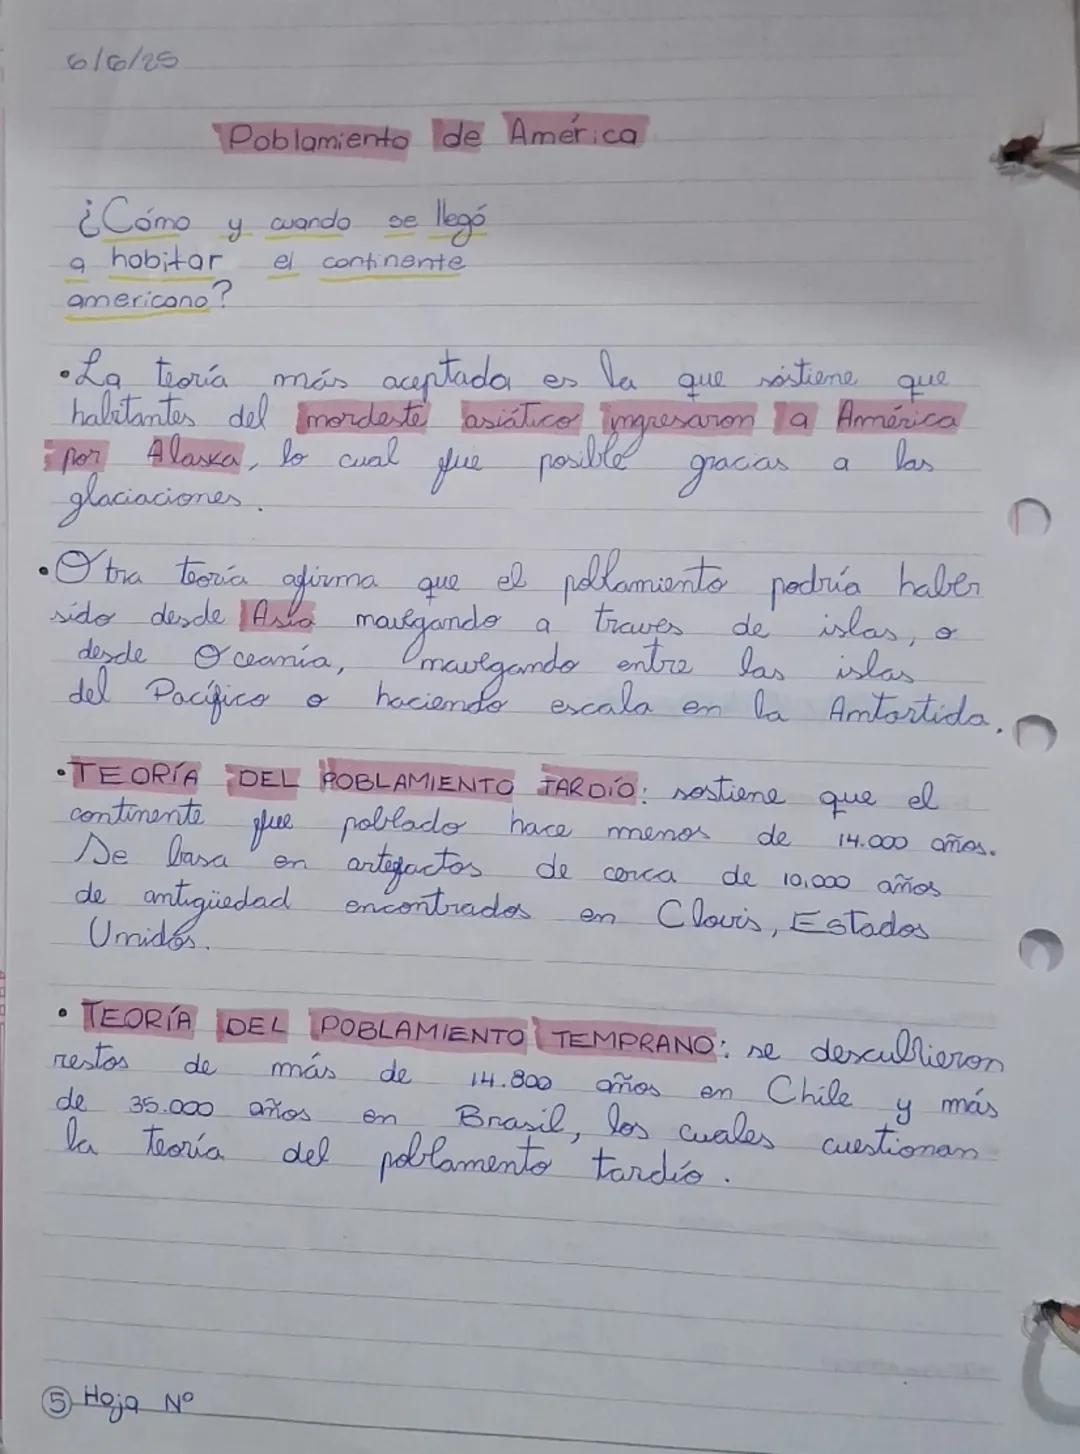 6/6/25
Poblamiento de América
¿Cómo y cuando se llegó
a habitar el continente
americano?
•La teoría más aceptada es la que sostiene que
habitantes del nordeste asiático ingresaron a América
por Alaska, lo cual fue posible gracias a las
glaciaciones.
•Otra teoría afirma que el poblamiento podría haber
sido desde Asia navegando a traves de islas, o
desde Oceanía, navegando entre las islas
del Pacífico o haciendo escala en la Antartida.
•TEORÍA DEL POBLAMIENTO TARDÍO: sostiene que el
continente fue poblado hace menos de 14.000 años.
Se basa en artefactos de cerca de 10.000 años
de antigüedad encontrados en Clovis, Estados
Unidos.
•TEORÍA DEL POBLAMIENTO TEMPRANO: se descubrieron
restos de más de 14.800 años en Chile y más
de 35.000 años en Brasil, los cuales cuestionan
la teoría del poblamento tardío.
5 Hoja Nº